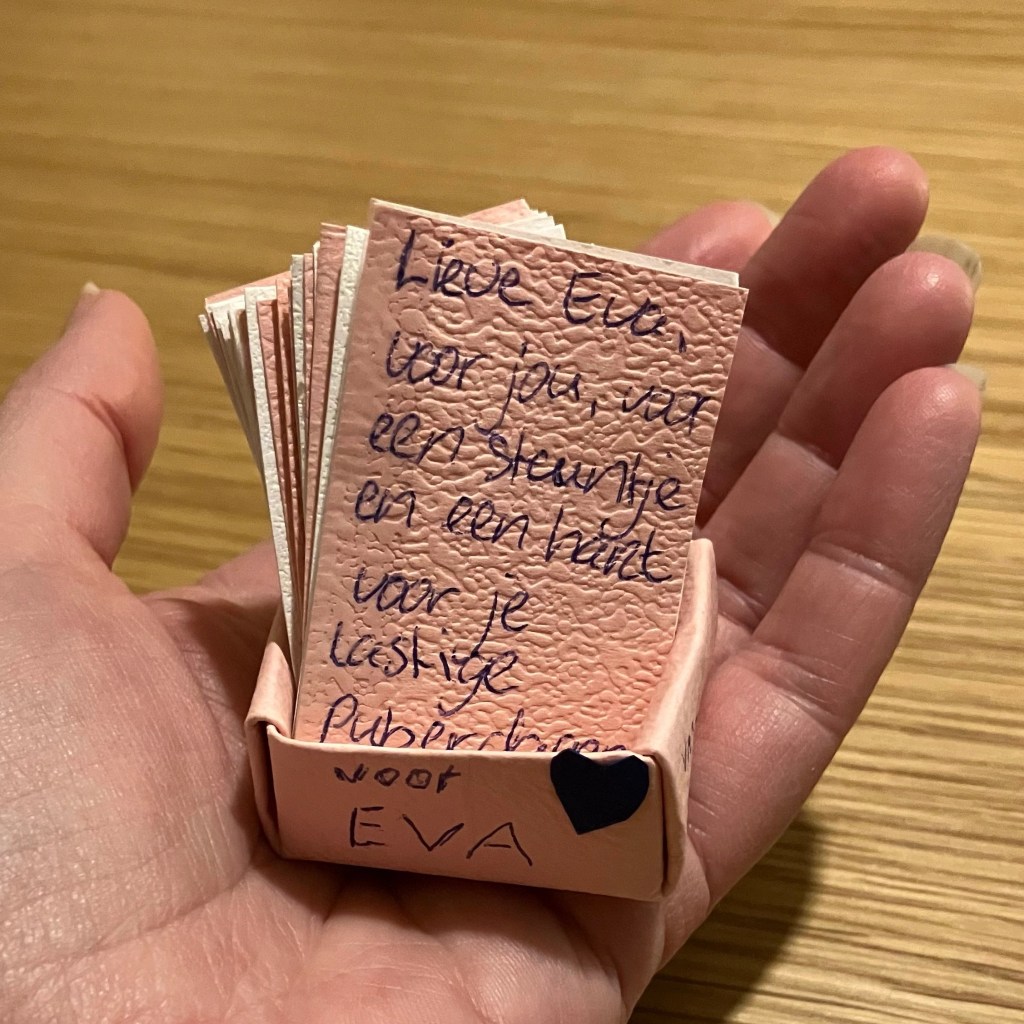 Lieve Eva,
voor jou, voor
een steuntje
en een hart
voor je
lastige
voor
EVA